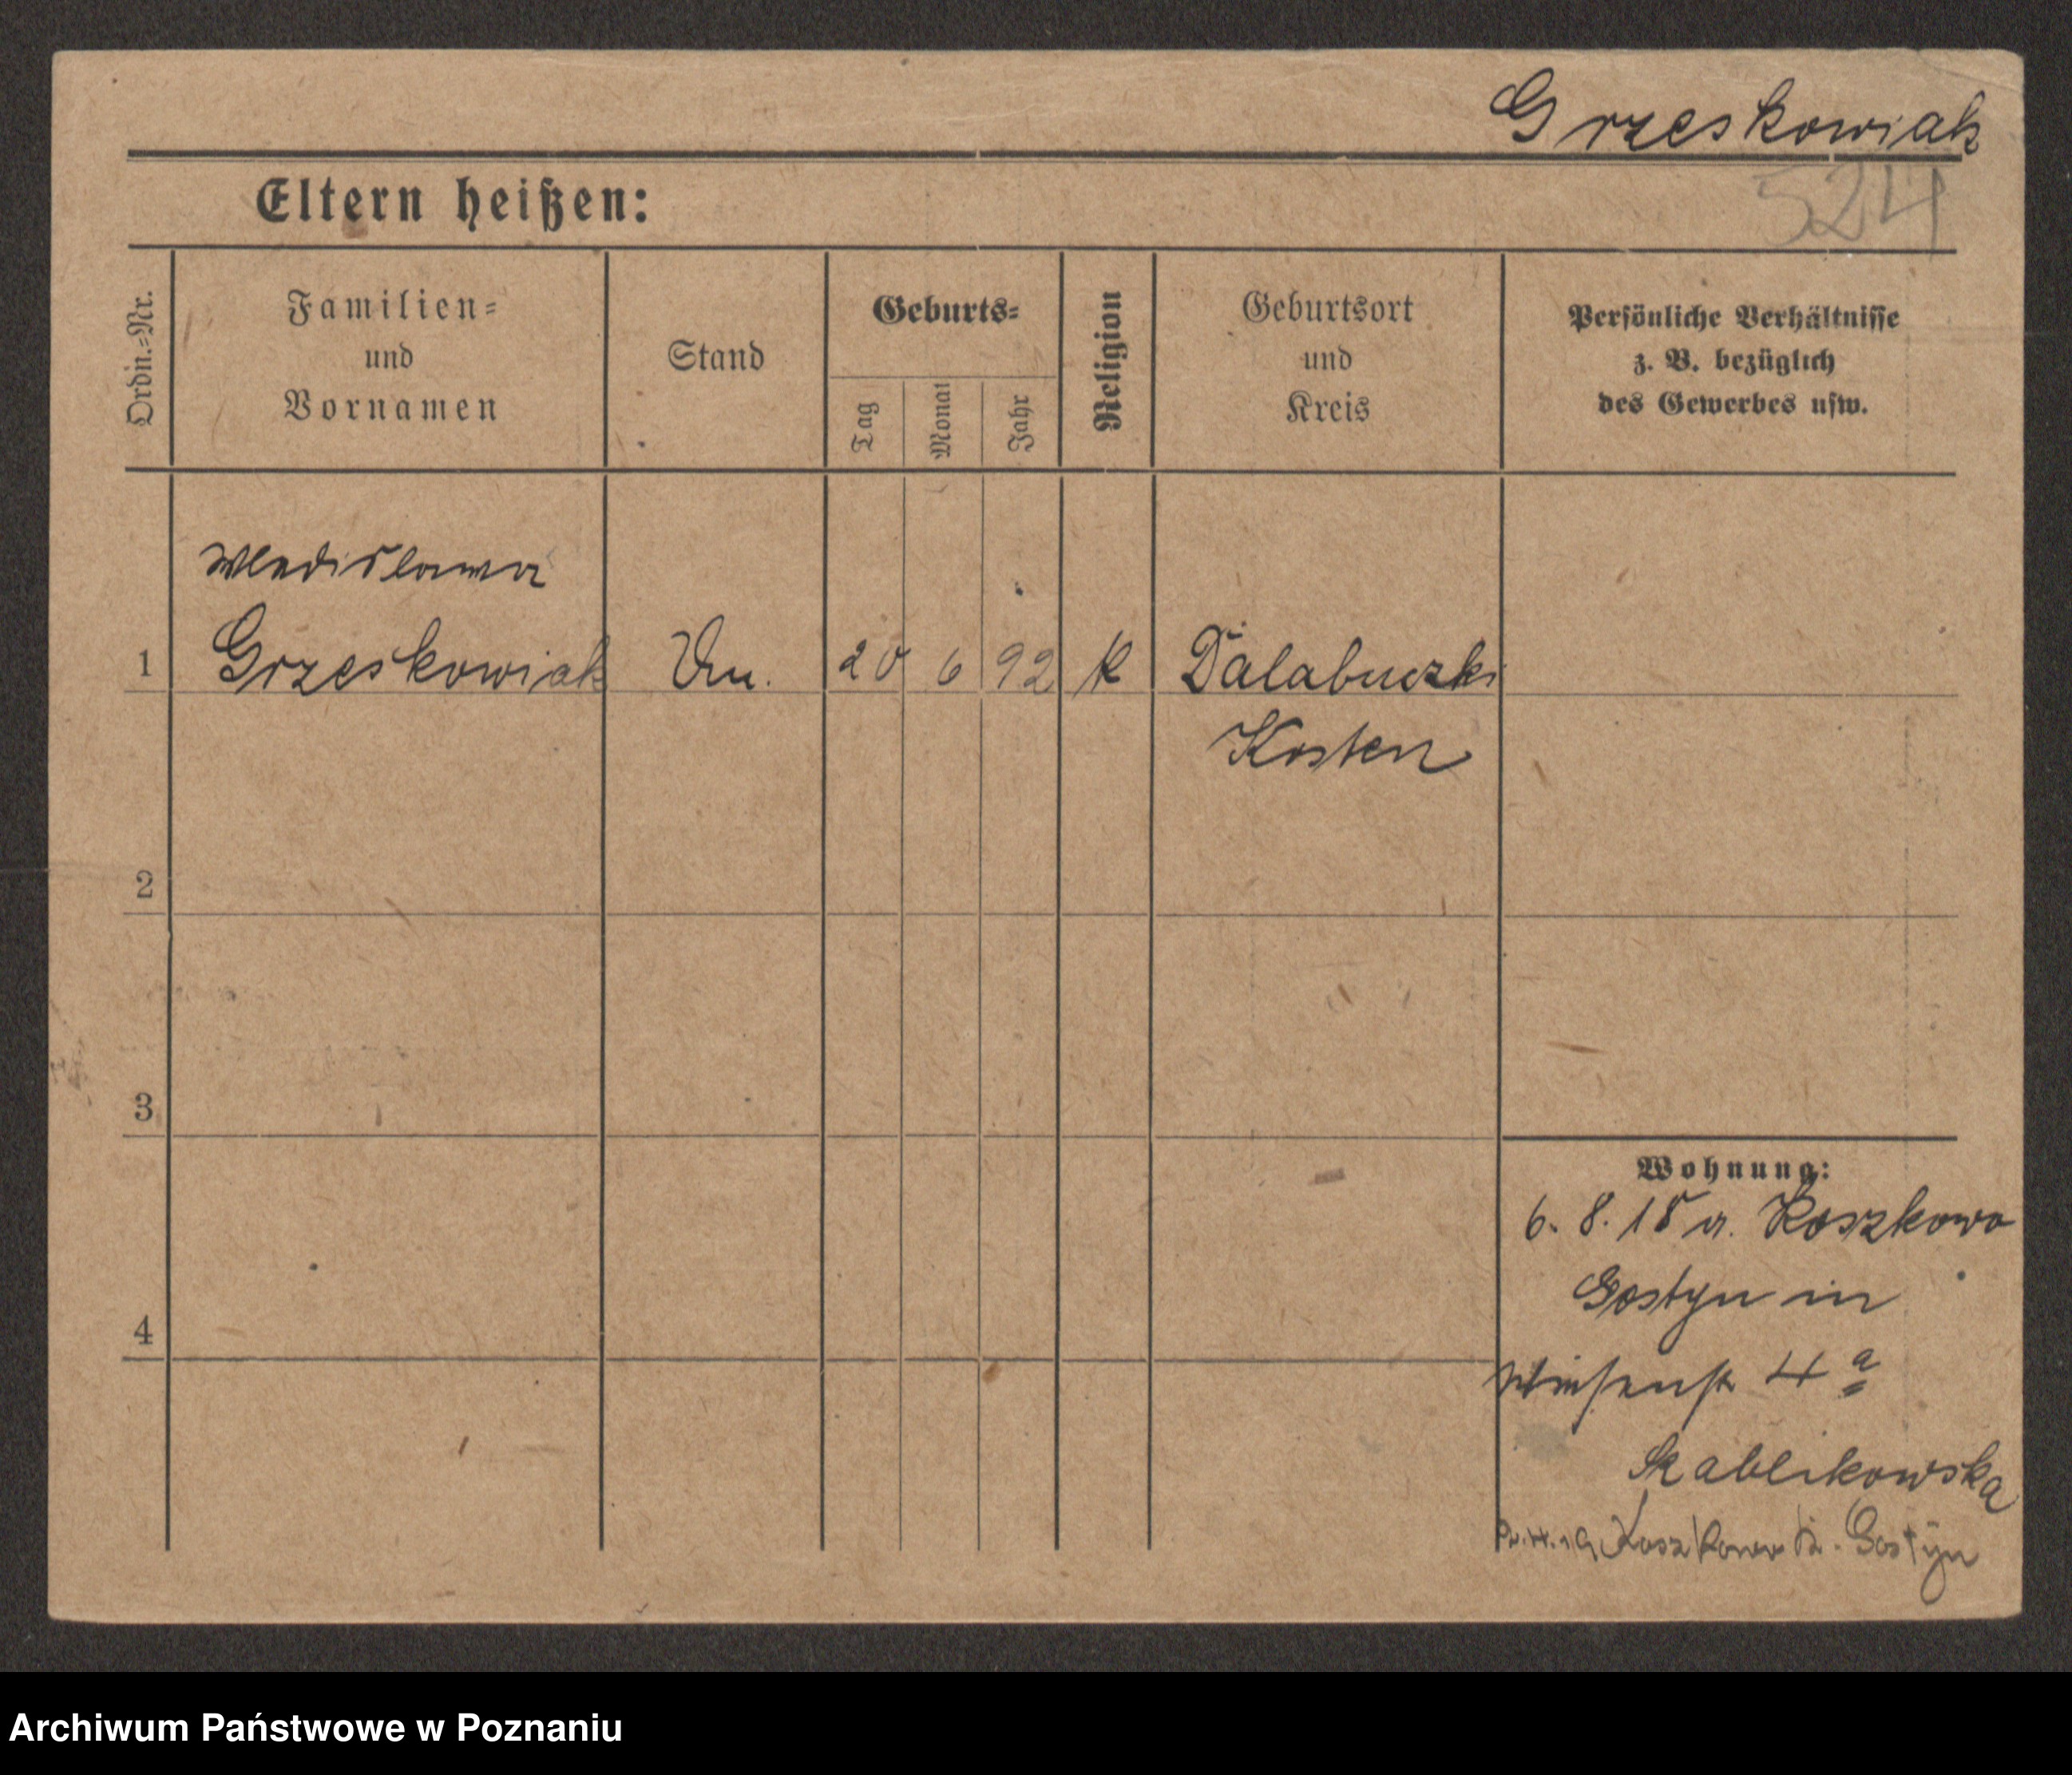 Grzeskowiak
524
Eltern heißen:
Ordn.=Nr.
Familien=
und
Vornamen
Stand
Geburts=
Tag
Monat
Jahr
Religion
Geburtsort
und
Kreis
Persönliche Verhältnisse
z. B. bezüglich
des Gewerbes usw.
Wladislawa
1 Grzeskowiak 20 6 92 K Dalabuszki
Kosten
2
3
Wohnung:
6. 8. 18 a. Koszkowo
Gostyn in
4
4 a
Skablikowska
Koszkowo Kr. Gostyn
Archiwum Państwowe w Poznaniu